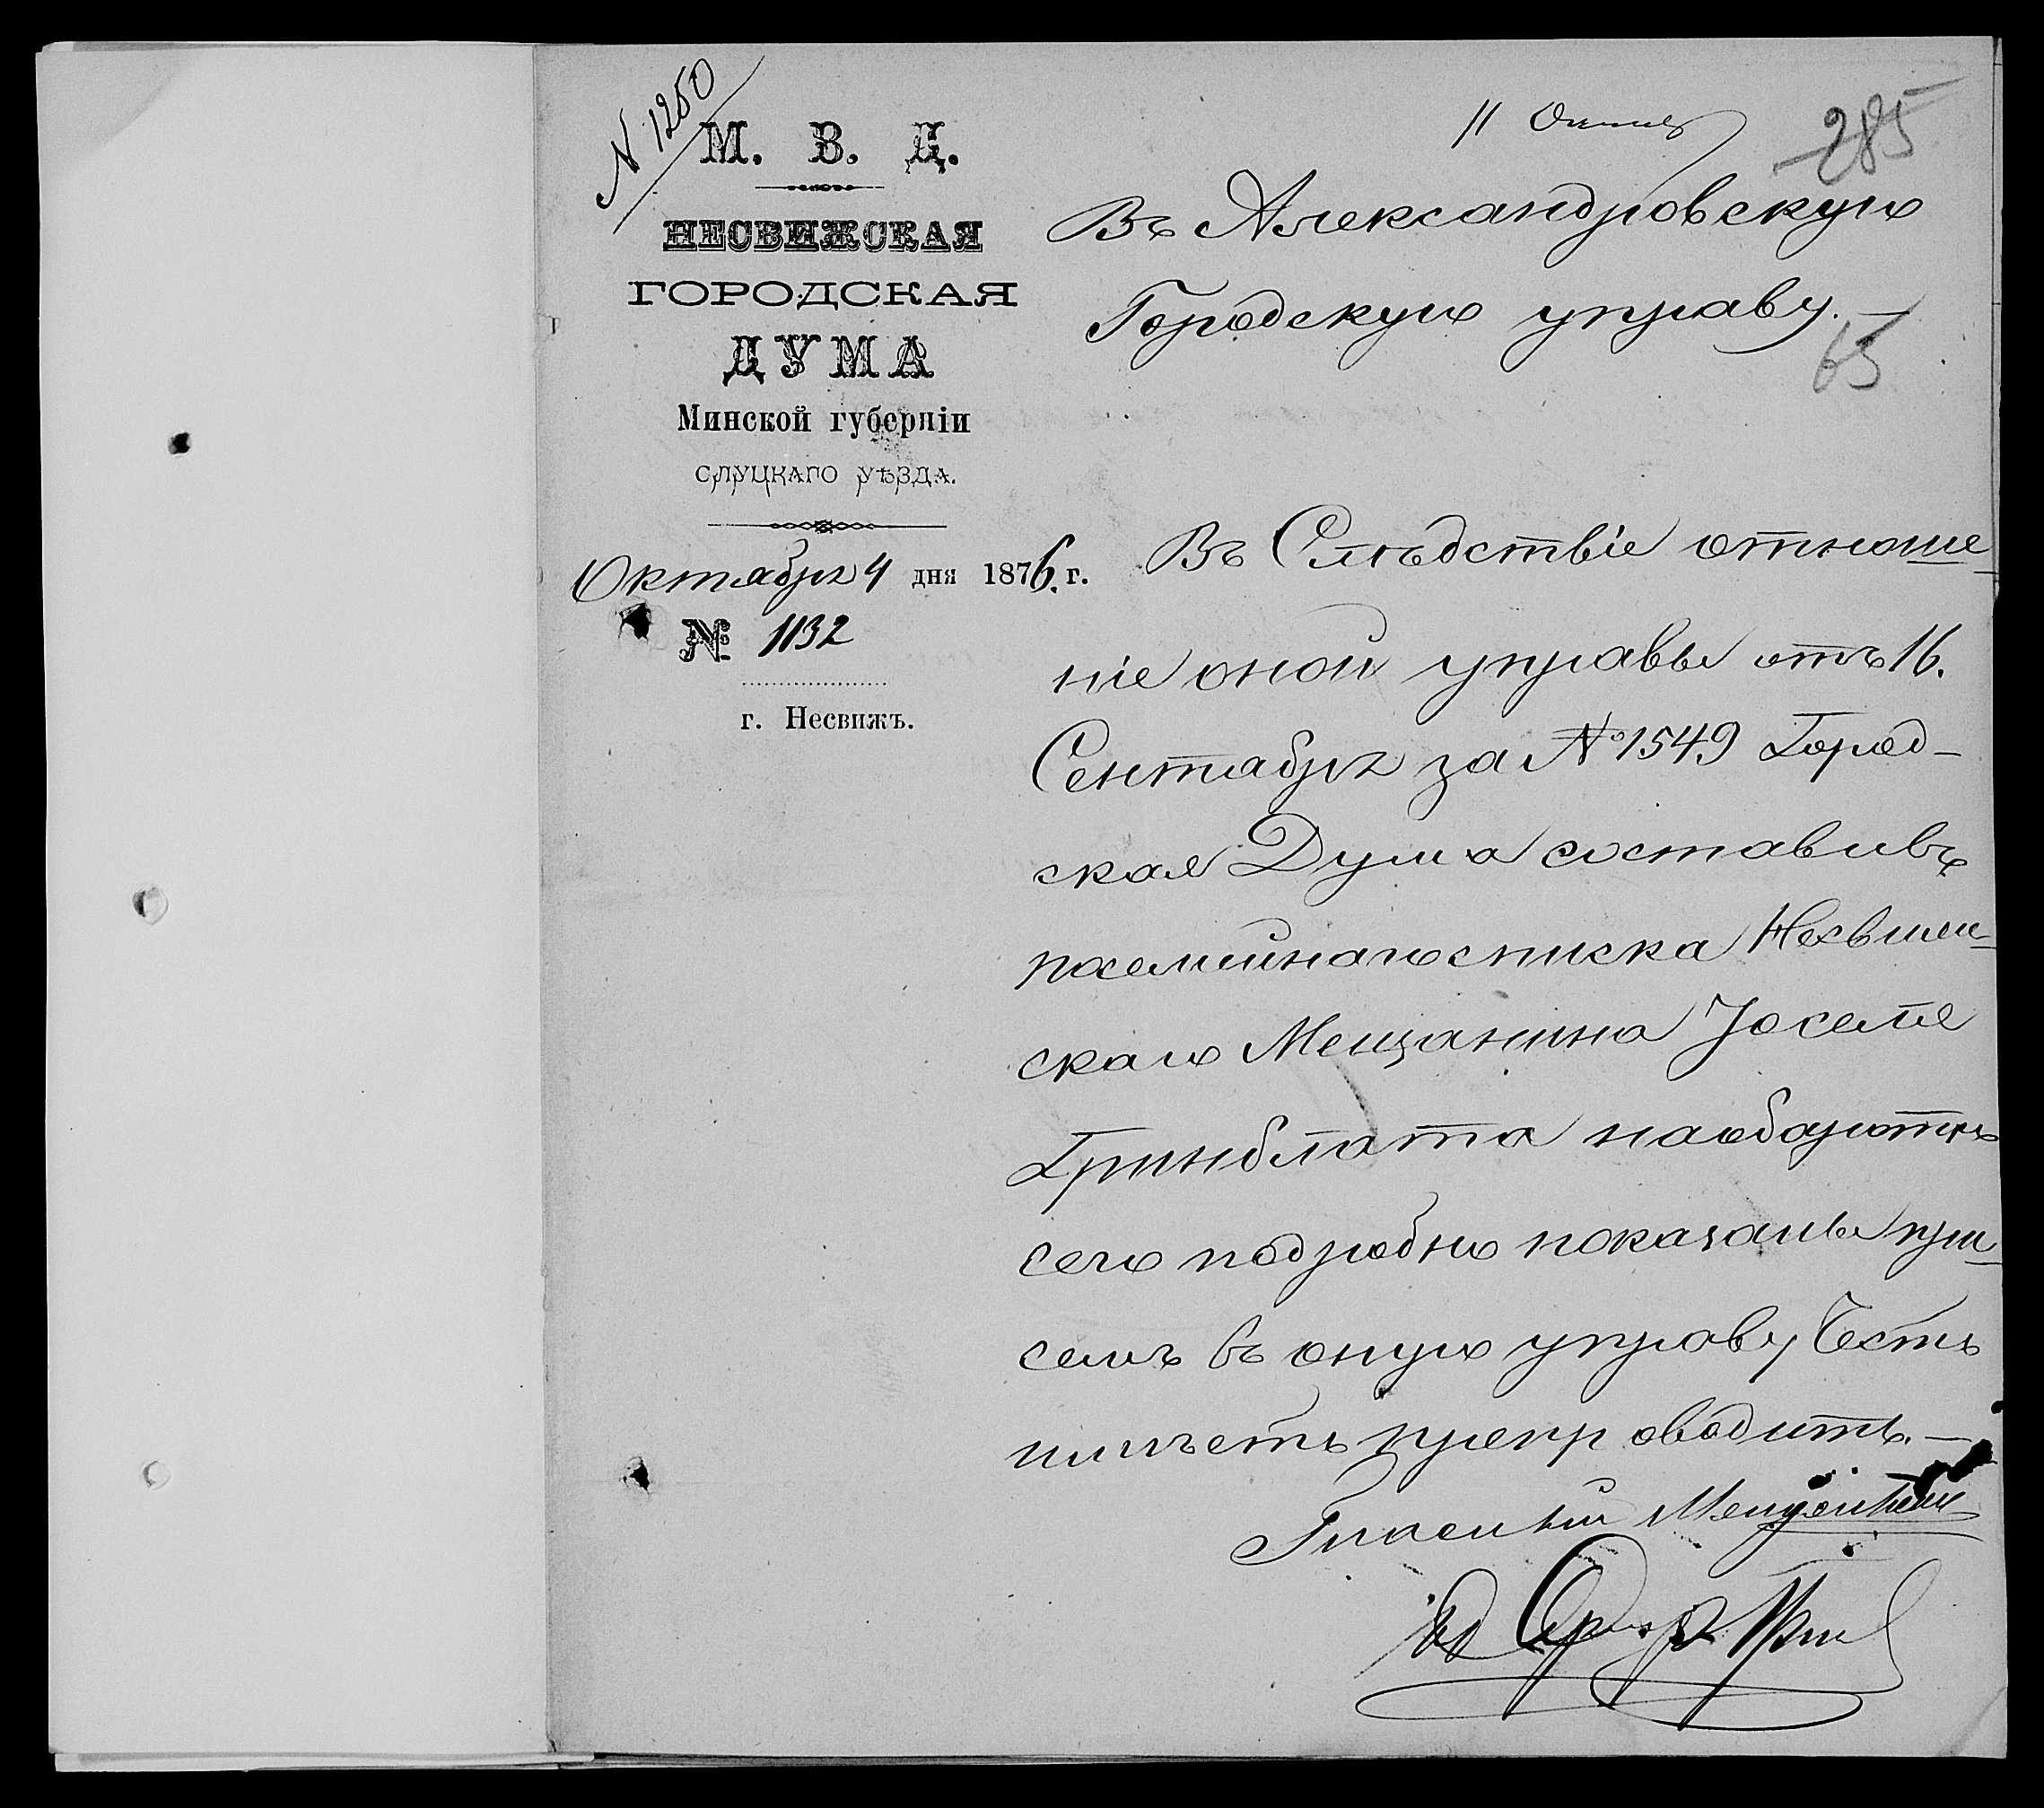 N 1250
М. В. Д.
НЕСВИЖСКАЯ
ГОРОДСКАЯ
ДУМА
Минской губерніи
СЛУЦКАГО УѢЗДА.
Октября 4 дня 1876. г.
№ 1132
г. Несвижъ.
11 Октяб
285
Въ Александровскую
Городскую управу. —
65
Въ Слѣдствіе отноше-
ніе оной управы отъ 16.
Сентября за № 1549 Город-
ская Дума составивъ
посемейнаго списка Несвиж-
скаго Мещанина Іоселя
Гринблата наоборотѣ
сего подробно показаны при
семъ въ оную управу Честь
имѣетъ препроводить. —
Гласный